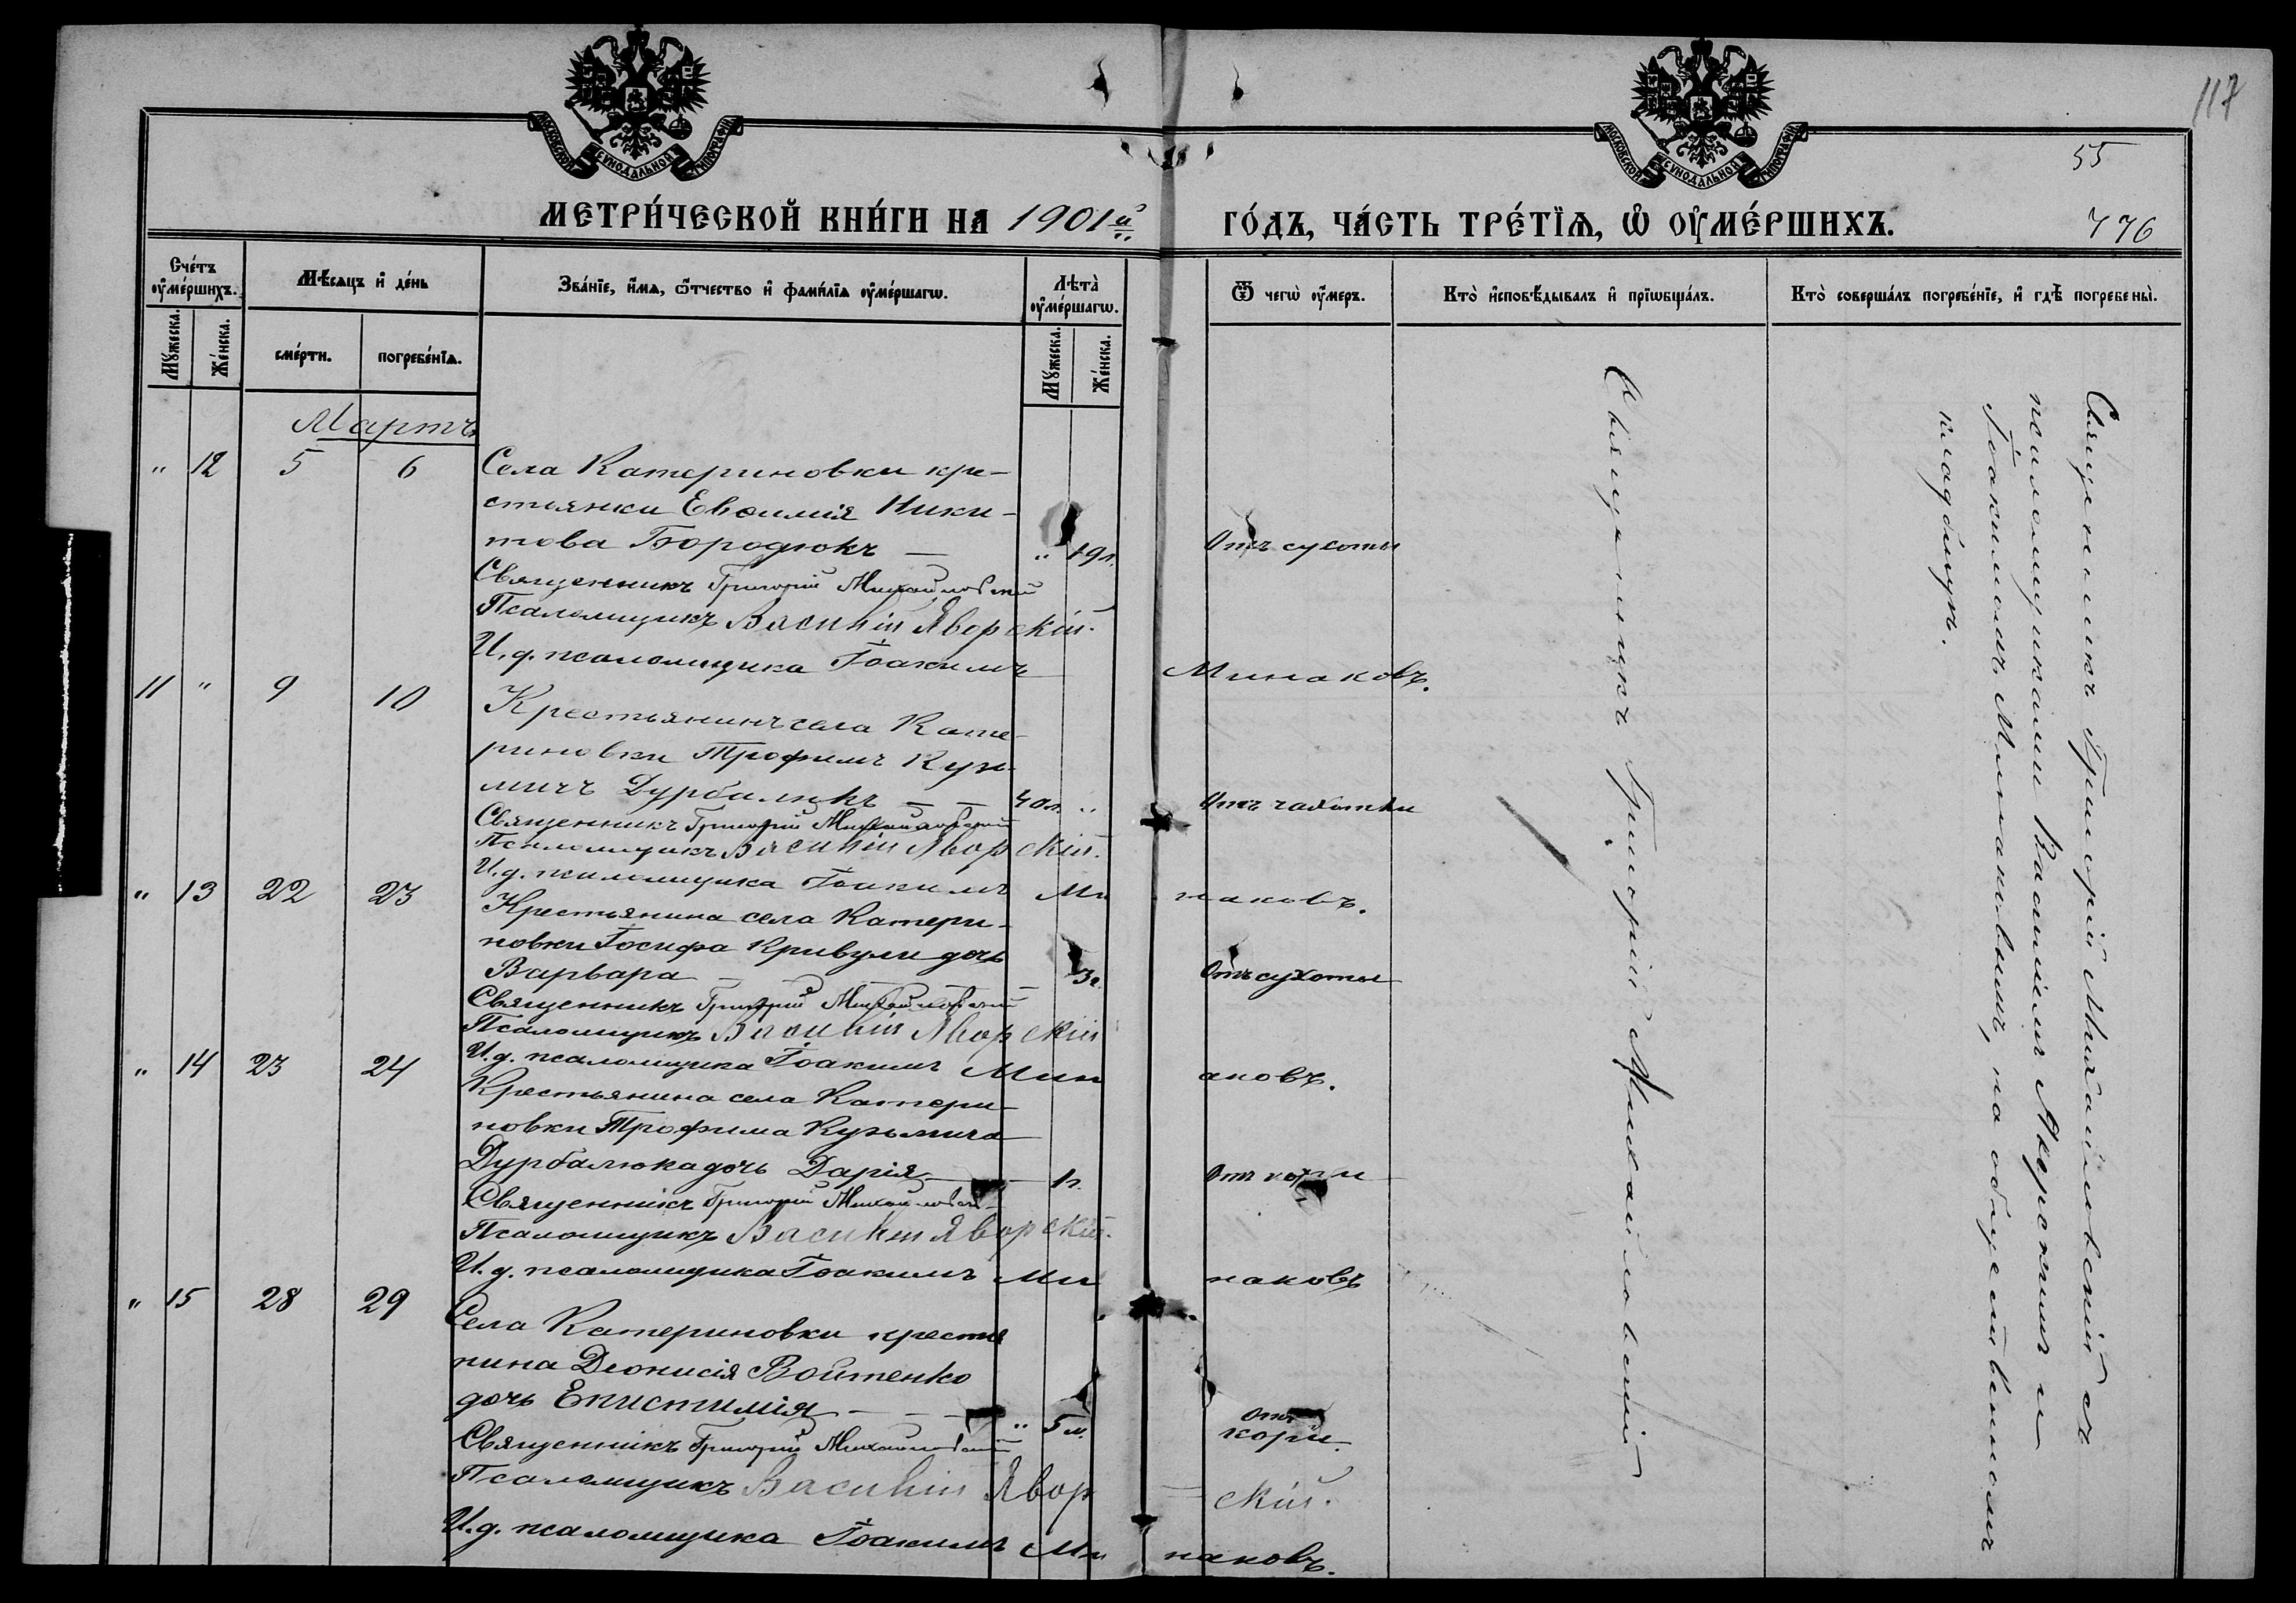 117
МОСКОВСКОЙ СѴНОДАЛЬНОЙ ТИПОГРАФІИ
МОСКОВСКОЙ СѴНОДАЛЬНОЙ ТИПОГРАФІИ
55
МЕТРИ́ЧЕСКОЙ КНИ́ГИ НА 1901й ГО́ДЪ, ЧА́СТЬ ТРЕ́ТЇѦ, Ѽ ОУ҆МЕ́РШИХЪ. 776
Сче́тъ оу҆ме́ршихъ. Мѣ́сѧцъ и҆ де́нь Зва́нїе, и҆́мѧ, ѻ҆́тчество и҆ фами́лїѧ оу҆ме́ршагѡ. Лѣ́та оу҆ме́ршагѡ. Ѿ чегѡ̀ оу҆́меръ. Кто̀ и҆сповѣ́дывалъ и҆ прїѡбща́лъ. Кто̀ соверша́лъ погребе́нїе, и҆ гдѣ̀ погребены̀.
Мꙋ́жеска. Же́нска. сме́рти. погребе́нїѧ. Мꙋ́жеска. Же́нска.
Мартъ
" 12 5 6 Села Катериновки кре-
стьянки Евѳимія Ники-
това Бородюкъ — " 19 л. Отъ сухоты
Священникъ Григорій Михайловскій
Псаломщикъ Василій Яворскій.
И. д. псаломщика Іоакимъ Минаковъ.
11 " 9 10 Крестьянинъ села Кате-
риновки Трофимъ Кузь-
мичъ Дурбалюкъ — — 40 л. " Отъ чахотки
Священникъ Григорій Михайловскій
Псаломщикъ Василій Яворскій.
И. д. псаломщика Іоакимъ Минаковъ.
" 13 22 23 Крестьянина села Катери-
новки Іосифа Кривули дочь
Варвара — — 3 г. Отъ сухоты
Священникъ Григорій Михайловскій
Псаломщикъ Василій Яворскій
И. д. псаломщика Іоакимъ Минаковъ.
" 14 23 24 Крестьянина села Катери-
новки Трофима Кузьмича
Дурбалюка дочь Дарія — 1 г. Отъ кори
Священникъ Григорій Михайловскій
Псаломщикъ Василій Яворскій.
И. д. псаломщика Іоакимъ Минаковъ
" 15 28 29 Села Катериновки крестья
нина Діонисія Войтенко
дочь Епистимія — — " 5 м. Отъ кори.
Священникъ Григорій Михайловскій
Псаломщикъ Василій Яворскій.
И. д. псаломщика Іоакимъ Минаковъ.
Священникъ Григорій Михайловскій
Священникъ Григорій Михайловскій съ
псаломщиками Василіемъ Яворскимъ и
Іоакимомъ Минаковымъ, на общественномъ
кладбищѣ.